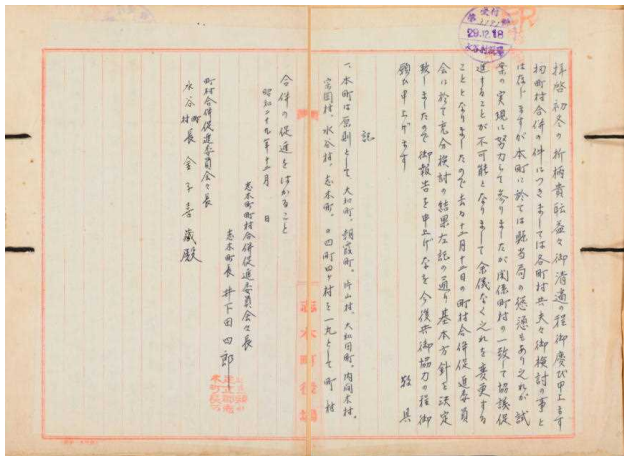 受付
29.12.18
水谷村役場
拝啓初冬の折柄貴畝益々御清適の程御慶び申上ます
扨町村合併の件につきましては各町村共夫々御検討の事と
は存じますが本町に於ては縣当局の慫慂もあり之れが試
案の実現に努力して参りましたが関係町村の一致して協議促
進することが不可能となりまして余儀なく之れを変更する
こととなりましたので去る十二月十二日の町村合併促進委員
会に於て充分検討の結果左記の通り基本方針を決定
致しましたので御報告を申上げなを今後共御協力の程御
願ひ申上げます 敬具
記
一、本町は原則として大和町、朝霞町、片山村、大和田町、内間木村、
宮岡村、水谷村、志木町、の四町四ヶ村を一丸として町村
合併の促進をはかること
昭和二十九年十二月 日
志木町町村合併促進委員会々長
志木町長 井下田四郎
町村合併促進委員会々長
水谷村長 金子喜蔵殿
志木町役場